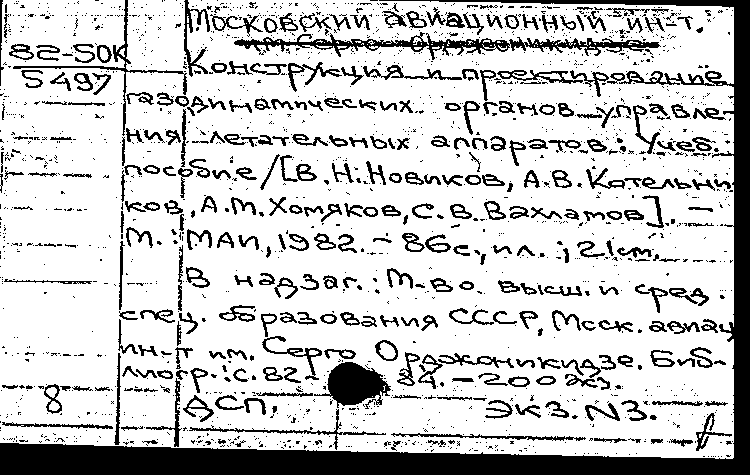 Московский авиационный ин-т.
им. Серго Орджоникидзе
82-50К
5497
Конструкция и проектирование
газодинамических органов управле-
ния летательных аппаратов: Учеб.
пособие/[В.Н.Новиков, А.В.Котельни
ков, А.М.Хомяков, С.В.Вахламов]. —
М.: МАИ, 1982. - 86с., ил.; 21см.
В надзаг.: М-во. высш. и сред.
спец. образования СССР, Моск. авиац
ин-т им. Серго Орджоникидзе. Биб-
лиогр.: с. 82- 84. - 200экз.
8 ДСП. Экз.N3.